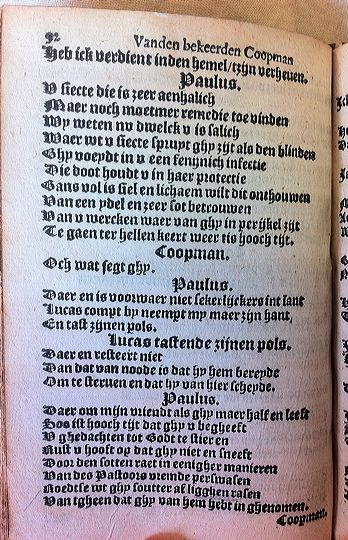 92
Vanden bekeerden Coopman
Heb ick verdient inden hemel/tzijn verheven.
Paulus.
V siecte die is zeer aenhalich
Maer noch moetmer remedie toe vinden
Wy weten nv dwelck v is salich
Waer wt v siecte spruyt ghy zijt als den blinden
Ghy voeydt in v een fenynich infectie
Die doot houdt v in haer protectie
Gans vol is siel en lichaem wilt dit onthouwen
Van een ydel en zeer sot betrouwen
Van v wercken waer van ghy in perijkel zijt
Te gaen ter hellen keert weer tis hooch tijt.
Coopman.
Och wat segt ghy.
Paulus.
Daer en is voorwaer niet sekerlijckers int lant
Lucas compt hy neempt my maer zijn hant,
En tast zijnen pols.
Lucas tastende zijnen pols.
Daer en resteert niet
Dan dat van noode is dat hy hem bereyde
Om te sterven en dat hy van hier scheyde.
Paulus.
Daer om mijn vriendt als ghy maer half en leeft
Soo ist hooch tijt dat ghy v begheeft
V ghedachten tot Godt te stieren
Rust v hooft op dat ghy niet en sneeft
Door den sotten raet in eenigher manieren
Van des Pastoors vremde perswasen
Noedtse wt ghy soutter af ligghen rasen
Van tgheen dat ghy van hem hebt in ghenomen.
Coopman.